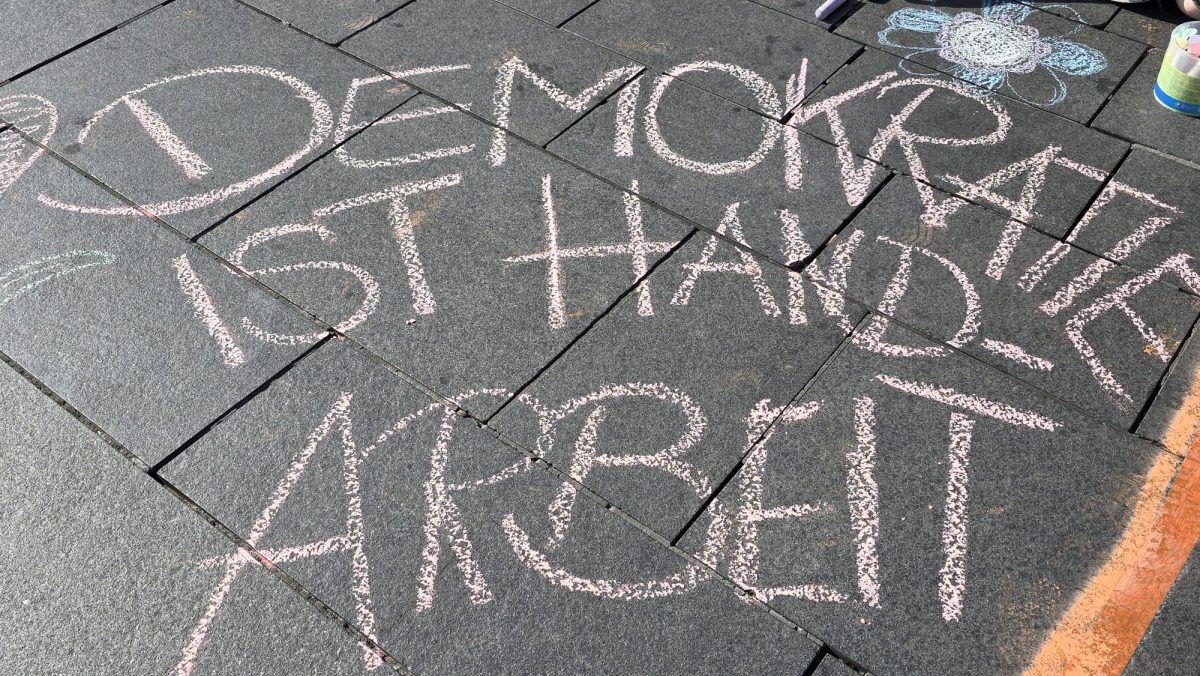 DEMOKRATIE
IST HAND-
ARBEIT